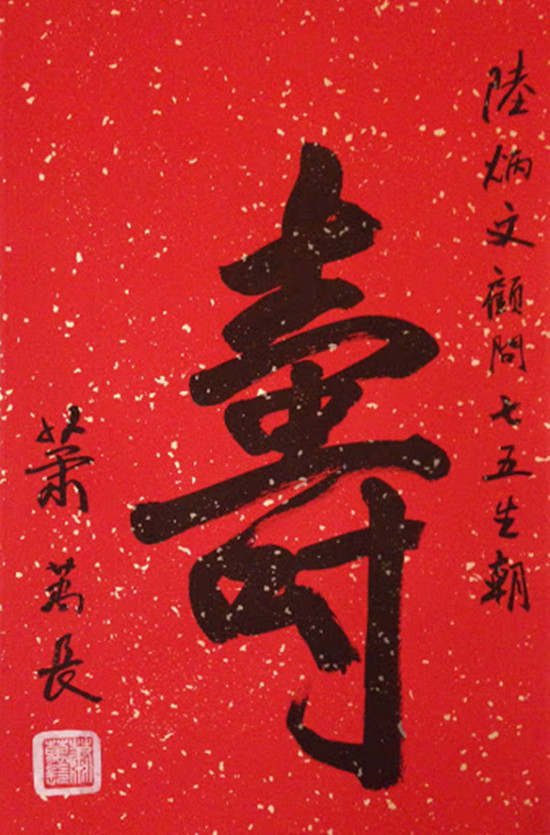 陸炳文顧問七五生朝
壽
蕭萬長